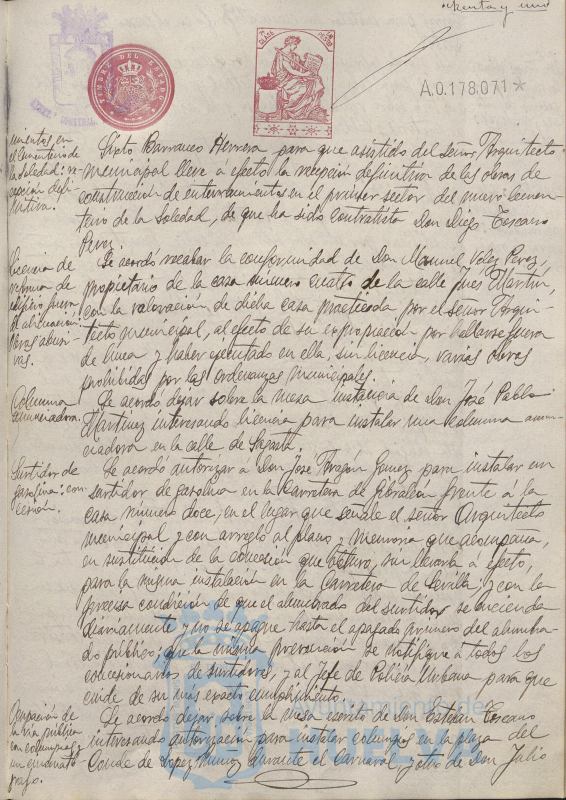 y uno
TIMBRE DEL ESTADO
7ª CLASE
A.0.178.071*
mientos en
el Cementerio de
la Soledad: re-
cepción defi-
nitiva.
Sixto Barranco Herrera para que asistido del señor Arquitecto
municipal lleve á efecto la recepción definitiva de las obras de
construcción de enterramientos en el primer sector del nuevo Cemen-
terio de la Soledad, de que ha sido contratista Don Diego Toscano
Perez
Licencia de
reforma de
edificio fuera
de alineación:
obras abusi-
vas.
Se acordó recabar la conformidad de Don Manuel Velez Perez,
propietario de la casa número cuatro de la calle Ines Martín,
con la valoración de dicha casa practicada, por el señor Arqui-
tecto municipal, al efecto de su expropiación por hallarse fuera
de linea y haber ejecutado en ella, sin licencia, varias obras
prohibidas por las ordenanzas municipales.
Columna
anunciadora.
Se acordó dejar sobre la mesa instancia de Don José Pablo
Martinez interesando licencia para instalar una columna anun-
ciadora en la calle de Sagasta.
Surtidor de
gasolina: con-
cesión.
Se acordó autorizar á Don José Aragón Gomez para instalar un
surtidor de gasolina en la Carretera de Gibraleón frente á la
casa número doce, en el lugar que señale el señor Arquitecto
municipal y con arreglo al plano y memoria que acompaña,
en sustitución de la concesión que obtuvo, sin llevarla á efecto,
para la misma instalación en la Carretera de Sevilla, y con la
precisa condición de que el alumbrado del surtidor se encienda
diariamente y no se apague hasta el apagado primero del alumbra-
do público; que la misma prevención se notifique a todos los
concesionarios de surtidores, y al Jefe de Policía Urbana para que
cuide de su más exacto cumplimiento.
Ocupación de
la vía pública
con columpios y
Se acordó dejar sobre la mesa escrito de don Esteban Toscano
interesando autorización para instalar columpios en la plaza del
Conde de Lopez Muñoz durante el Carnaval y otro de Don Julio
Ayuntamiento de
HUELVA